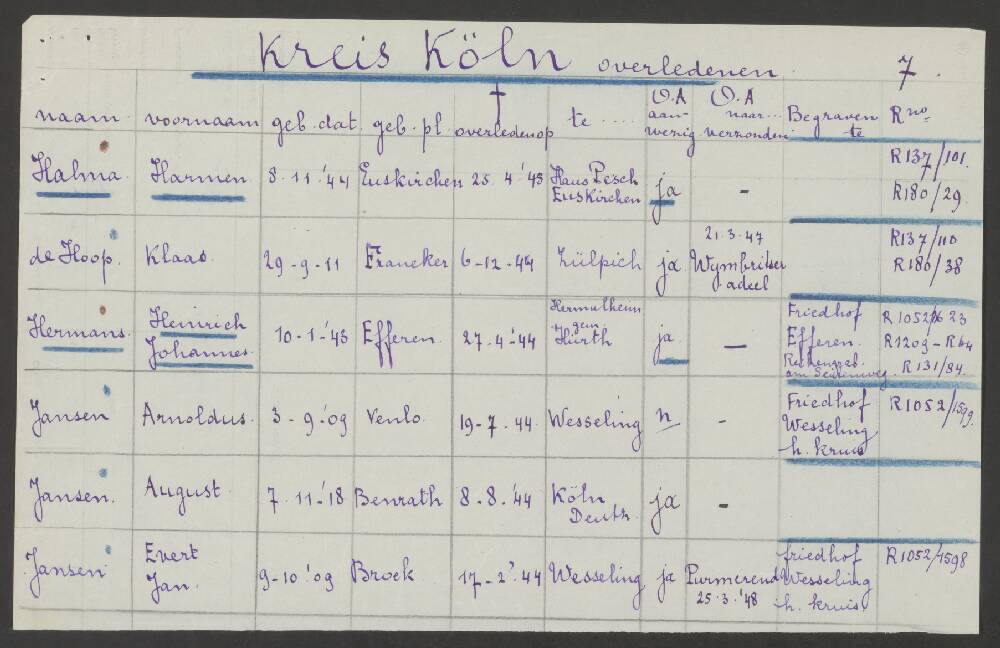 Kreis Köln overledenen 7.
naam. voornaam geb. dat. geb. pl. overleden op te .... O.A aan- wezig O.A naar... verzonden. Begraven te R no.
Halma. Harmen 8.11.'44 Euskirchen 25.4.'45 Haus Pesch Euskirchen ja - R137/101.
R180/29
de Hoop. Klaas. 29-9-11 Franeker 6-12-44 Zülpich ja. 21.3.47 Wymbritser adeel R137/110
R180/38
Hermans. Heinrich Johannes. 10-1-'43 Efferen. 27.4-'44 Hermülheim gem Hürth ja. - Friedhof Efferen.
R1209-R64
R131/84.
Jansen Arnoldus. 3-9-'09 Venlo. 19-7.44 Wesseling n - Friedhof Wesseling h. kruis R1052/1599.
Jansen. August. 7.11-'18 Benrath 8-8.'44 Köln Deutz ja -
Jansen Evert Jan. 9-10'09 Broek 17-2'.44 Wesseling ja Purmerend 25.3.'48 friedhof Wesseling h. kruis R1052/1598